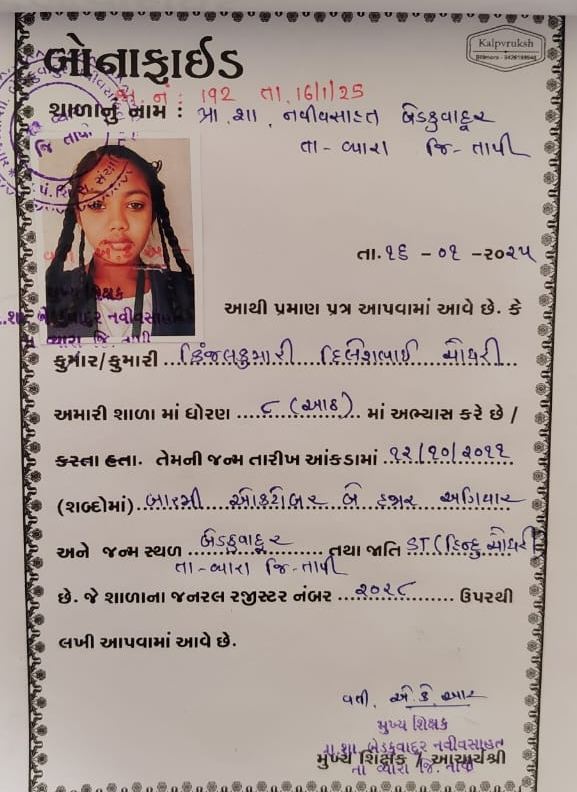 બોનાફાઈડ
Kalpvruksh
જા. નં : 192 તા. 16/1/25
શાળાનું નામ : પ્રા. શા. નવીવસાહત બેડકુવાદૂર
તા - વ્યારા જિ - તાપી
તા. ૧૬ - ૦૧ - ૨૦૨૫
આથી પ્રમાણ પત્ર આપવામાં આવે છે. કે
કુમાર/કુમારી કિંજલકુમારી દિલેશભાઈ ચૌધરી
અમારી શાળા માં ધોરણ ૮ (આઠ) માં અભ્યાસ કરે છે /
કરતા હતા. તેમની જન્મ તારીખ આંકડામાં ૧૨/૧૦/૨૦૧૧
(શબ્દોમાં) બારમી ઓક્ટોબર બે હજાર અગિયાર
અને જન્મ સ્થળ બેડકુવાદૂર તથા જાતિ ST (હિન્દુ ચૌધરી)
તા - વ્યારા જિ - તાપી
છે. જે શાળાના જનરલ રજીસ્ટર નંબર ૨૦૨૮ ઉપરથી
લખી આપવામાં આવે છે.
મુખ્ય શિક્ષક
પ્રા.શા. બેડકુવાદૂર નવીવસાહત
તા વ્યારા જિ. તાપી
મુખ્ય શિક્ષક / આચાર્યશ્રી